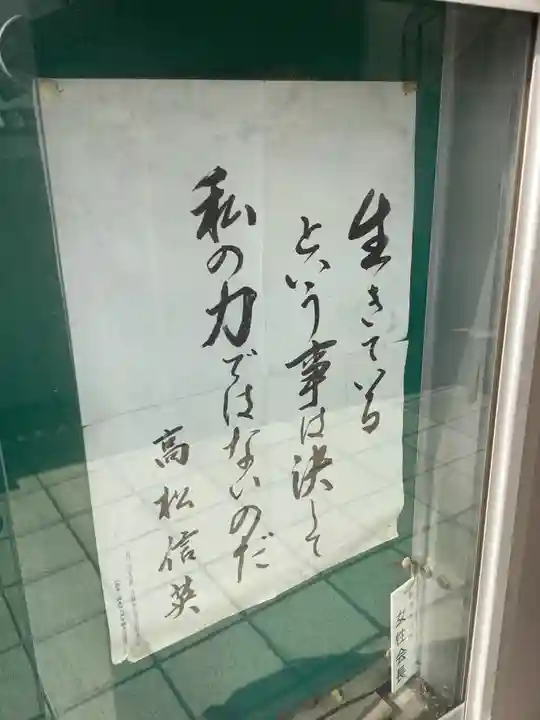 生きている
という事は決して
私の力ではないのだ
高松信英
女性会長